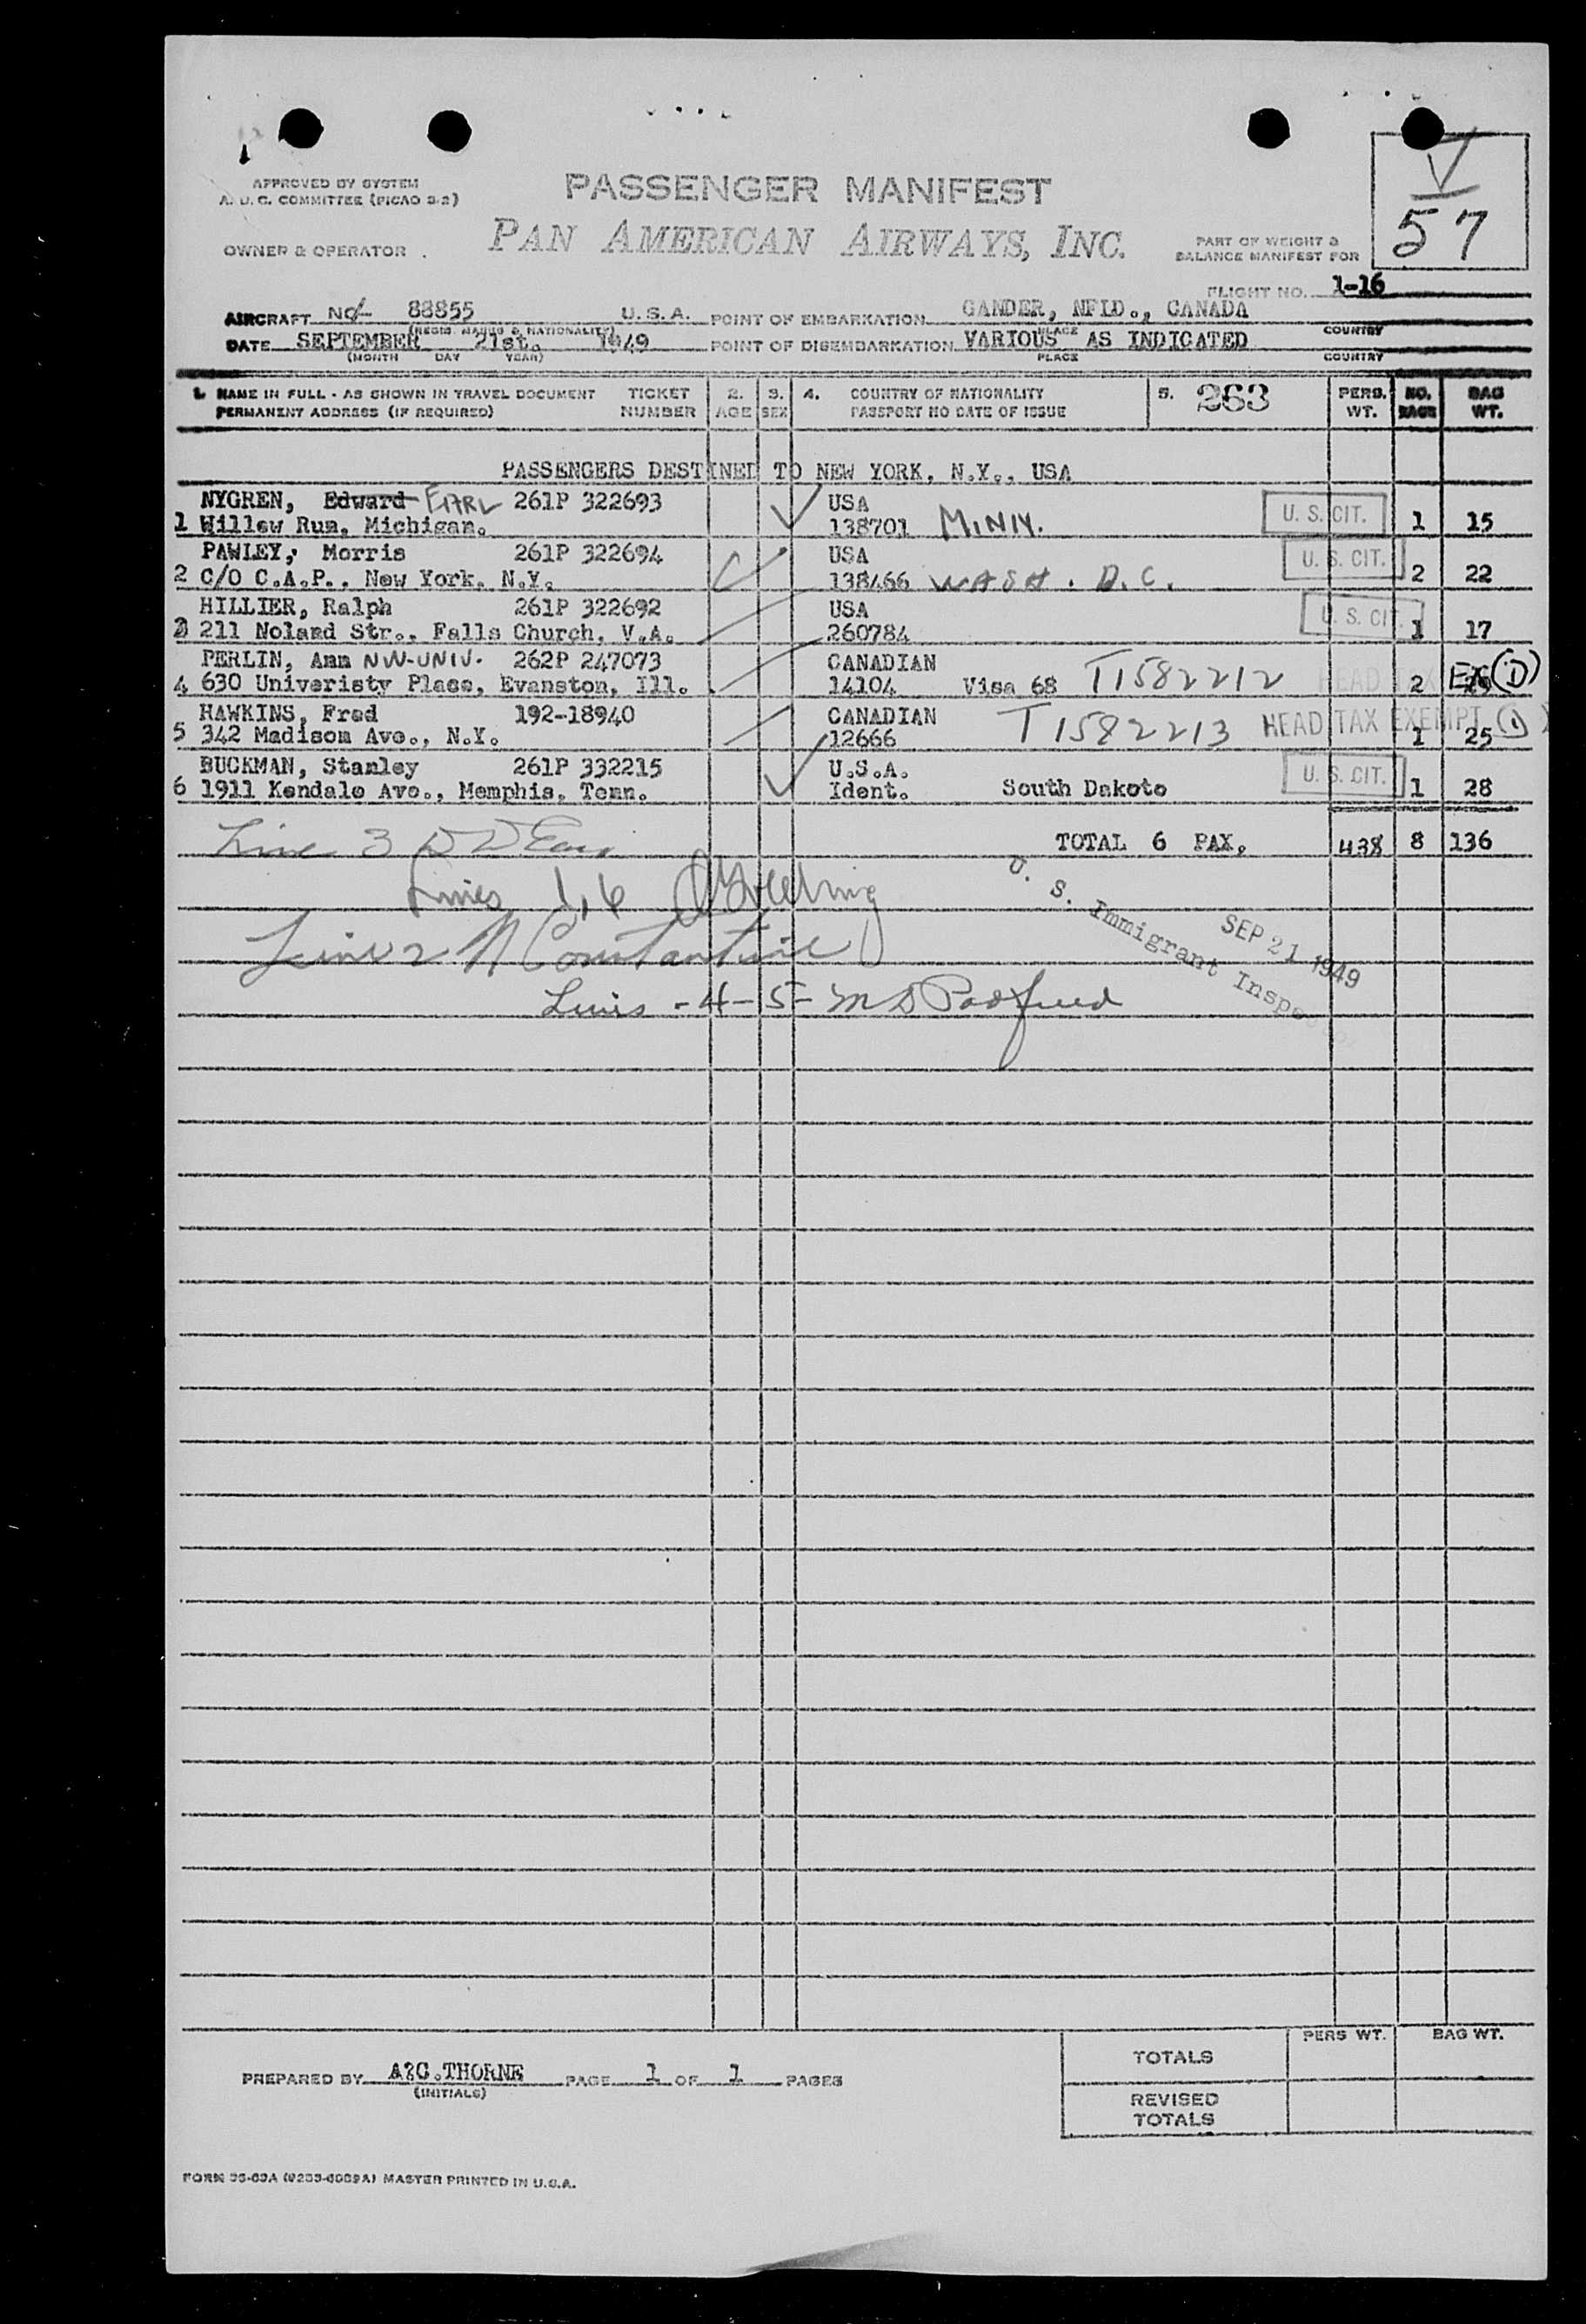 APPROVED BY SYSTEM
A. U. C. COMMITTEE (PICAO 3-2)
OWNER & OPERATOR
PASSENGER MANIFEST
PAN AMERICAN AIRWAYS, INC.
V
57
PART OF WEIGHT &
BALANCE MANIFEST FOR
FLIGHT NO. 1-16
AIRCRAFT NC- 88855 U.S.A. POINT OF EMBARKATION GANDER, NFLD., CANADA
(REGIS. MARKS & NATIONALITY) PLACE COUNTRY
DATE SEPTEMBER 21st. 1949 POINT OF DISEMBARKATION VARIOUS AS INDICATED
(MONTH DAY YEAR) PLACE COUNTRY
1. NAME IN FULL - AS SHOWN IN TRAVEL DOCUMENT TICKET 2. 3. 4. COUNTRY OF NATIONALITY 5. 263 PERS. NO. BAG
PERMANENT ADDRESS (IF REQUIRED) NUMBER AGE SEX PASSPORT NO DATE OF ISSUE WT. BAGS WT.
PASSENGERS DESTINED TO NEW YORK, N.Y., USA
NYGREN, Edward EARL 261P 322693 USA U. S. CIT.
1 Willow Run, Michigan. 138701 MINN. 1 15
PAWLEY, Morris 261P 322694 USA U. S. CIT.
2 C/O C.A.P., New York, N.Y. 138466 WASH. D.C. 2 22
HILLIER, Ralph 261P 322692 USA U. S. CIT.
3 211 Noland Str., Falls Church, V.A. 260784 1 17
PERLIN, Ann NW-UNIV. 262P 247073 CANADIAN T1582212 HEAD TAX EX (D)
4 630 Univeristy Place, Evanston, Ill. 14104 Visa 68 2
HAWKINS, Fred 192-18940 CANADIAN T1582213 HEAD TAX EXEMPT (1)
5 342 Madison Ave., N.Y. 12666 1 25
BUCKMAN, Stanley 261P 332215 U.S.A. U. S. CIT.
6 1911 Kendale Ave., Memphis, Tenn. Ident. South Dakoto 1 28
Line 3
TOTAL 6 PAX, 438 8 136
Lines 1,6
Line 2 N Constantine
Lines - 4 - 5 - M D
U. S. Immigrant Inspector
SEP 21 1949
PREPARED BY A?C.THORNE PAGE 1 OF 1 PAGES
(INITIALS)
PERS WT. BAG WT.
TOTALS
REVISED
TOTALS
FORM 35-63A MASTER PRINTED IN U.S.A.